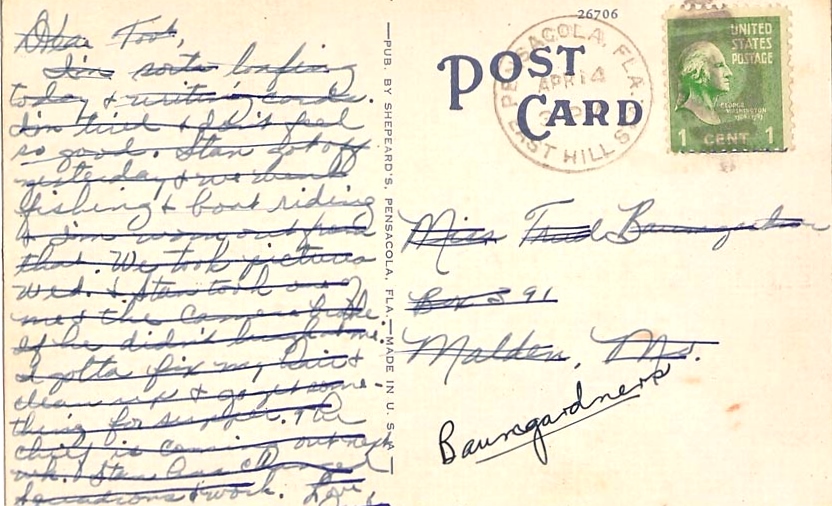 Dear Toot,
I'm sorta loafing
today & writing cards.
I'm tired & don't feel
so good. Stan got off
yesterday & we went
fishing & boat riding
& I'm worn out from
that. We took pictures
Wed. & Stan took one of
me & the camera broke.
If he didn't laugh at me.
I gotta fix my hair &
clean up & go get some-
thing for supper. The
chief is coming out next
wk. Stan has changed
squadrons & work. Love
PUB. BY SHEPEARD'S, PENSACOLA, FLA.—MADE IN U. S. A.
26706
POST
CARD
PENSACOLA, FLA.
APR 14
EAST HILL S
UNITED
STATES
POSTAGE
GEORGE
WASHINGTON
1 CENT 1
Miss Trud Baumgardner
Box 391
Malden, Mo.
Baumgardners